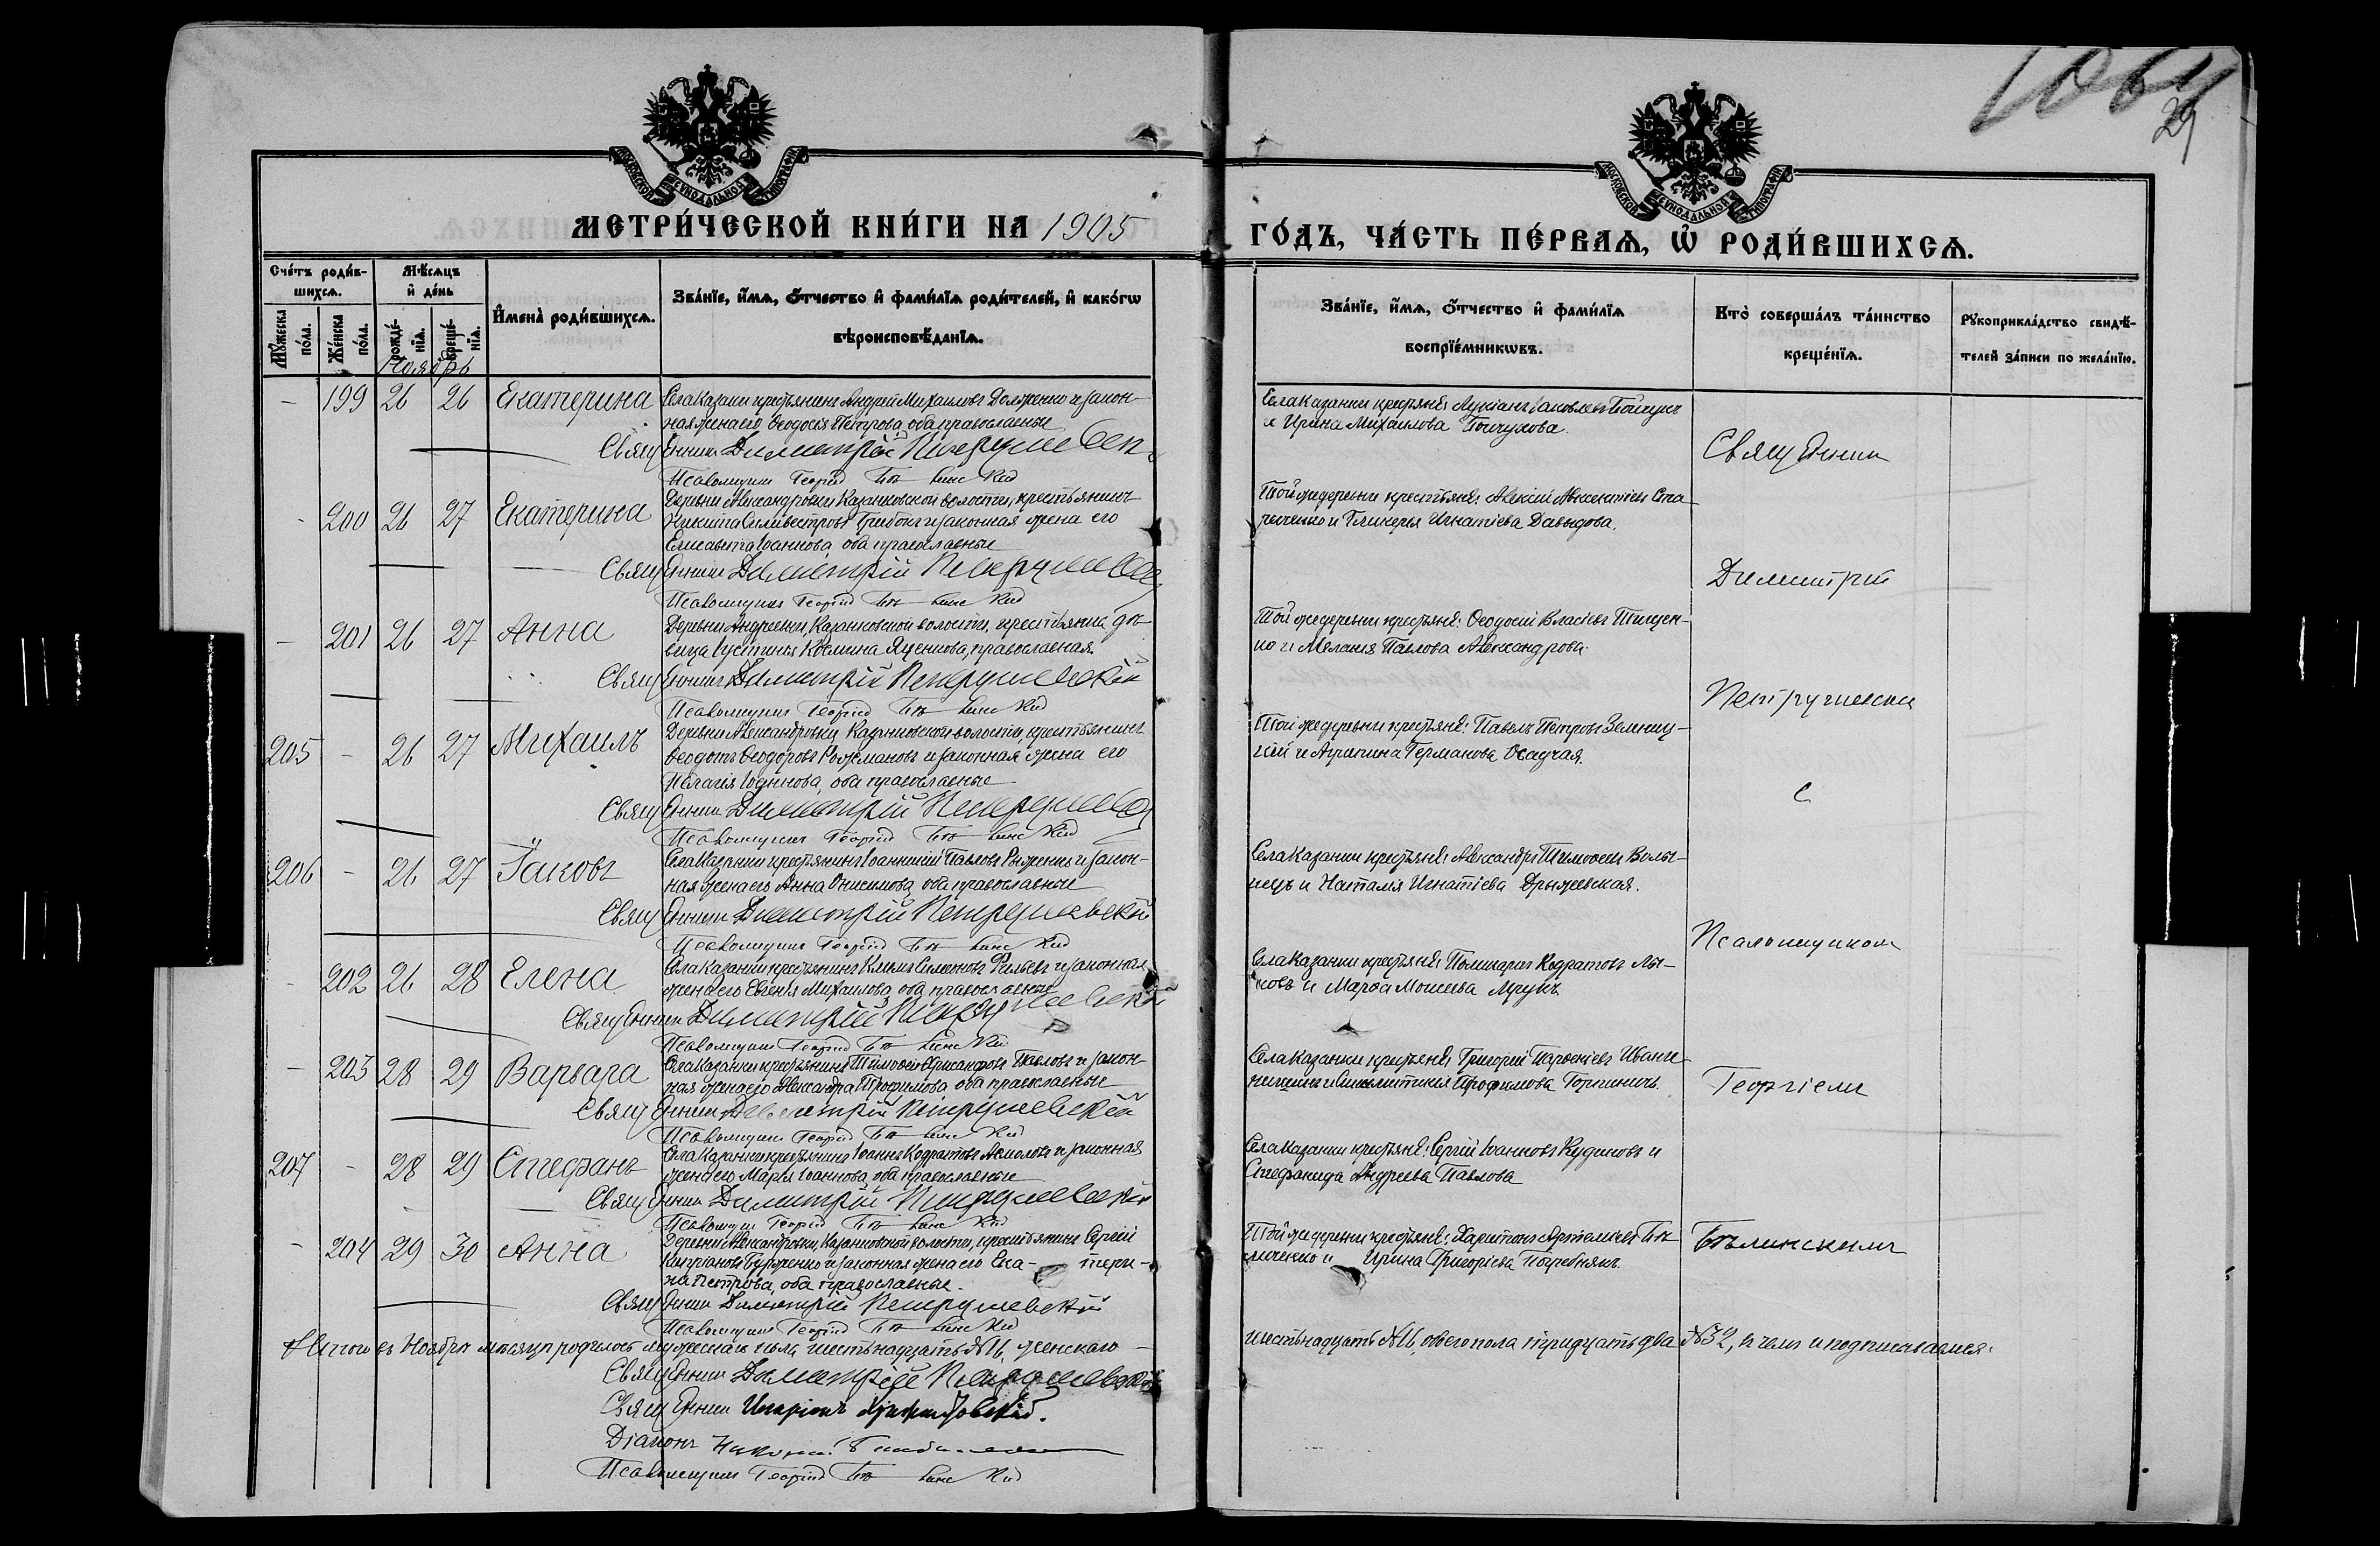 1064
29
МОСКОВСКОЙ СѴНОДАЛЬНОЙ ТИПОГРАФІИ
МОСКОВСКОЙ СѴНОДАЛЬНОЙ ТИПОГРАФІИ
МЕТРИ́ЧЕСКОЙ КНИ́ГИ НА 1905
ГО́ДЪ, ЧА́СТЬ ПЕ́РВАѦ, Ѡ҆ РОДИ́ВШИХСѦ.
Сче́тъ роди́в-
шихсѧ.
Мꙋ́жеска по́ла.
Же́нска по́ла.
Мѣ́сѧцъ
и҆ де́нь
рожде́-
нїѧ.
креще́-
нїѧ.
И҆мена̀ роди́вшихсѧ.
Зва́нїе, и҆́мѧ, ѻ҆́тчество и҆ фами́лїѧ роди́телей, и҆ како́гѡ
вѣроисповѣ́данїѧ.
Зва́нїе, и҆́мѧ, ѻ҆́тчество и҆ фами́лїѧ
воспрїе́мникѡвъ.
Кто̀ соверша́лъ та́инство
креще́нїѧ.
Рꙋкоприкла́дство свидѣ́-
телей за́писи по жела́нїю.
Ноябрь
- 199 26 26 Екатерина
Села Казанки крестьянинъ Андрей Михаиловъ Долженко и закон-
ная жена его Ѳеодосія Петрова, оба православные
Священникъ Димитрій
Псаломщикъ Георгій Бѣлинскій
Села Казанки крестьяне: Лукіанъ Іаковлевъ
и Ирина Михаилова
Священникъ
- 200 26 27 Екатерина
Деревни Александровки Казанковской волости, крестьянинъ
Никита Силивестровъ Грибокъ и законная жена его
Елисавета Іоаннова, оба православные
Священникъ Димитрій
Псаломщикъ Георгій Бѣлинскій
Той же деревни крестьяне: Алексій
и Гликерья Игнатіева Давыдова.
Димитрій
- 201 26 27 Анна
Деревни Андреевки, Казанковской волости, крестьянка дѣ-
вица Іустинія Косьмина Яценкова, православная.
Священникъ Димитрій Петрушевскій
Псаломщикъ Георгій Бѣлинскій
Той же деревни крестьяне: Ѳеодосій Власіевъ Тищен-
ко и Меланія Павлова Александрова.
Петрушевскій
205 - 26 27 Михаилъ
Деревни Александровки, Казанковской волости, крестьянинъ
Ѳеодотъ Ѳеодоровъ и законная жена его
Пелагія Іоаннова, оба православные
Священникъ Димитрій
Псаломщикъ Георгій Бѣлинскій
Той же деревни крестьяне: Павелъ Петровъ
и Агрипина Германова Осадчая.
с
206 - 26 27 Іаковъ
Села Казанки крестьянинъ Іоанникій Павловъ и закон-
ная жена его Анна Онисимова, оба православные
Священникъ Димитрій Петрушевскій
Псаломщикъ Георгій Бѣлинскій
Села Казанки крестьяне: Александръ Тимоѳеевъ Волы-
нецъ и Наталія Игнатіева
Псаломщикомъ
- 202 26 28 Елена
Села Казанки крестьянинъ Климъ Симеоновъ и законная
жена его Евгенія Михаилова, оба православные
Священникъ Димитрій Петрушевскій
Псаломщикъ Георгій Бѣлинскій
Села Казанки крестьяне: Поликарпъ Кодратовъ
и Марѳа Моисеева
- 203 28 29 Варвара
Села Казанки крестьянинъ Тимоѳей Павловъ и закон-
ная жена его Александра Трофимова, оба православные
Священникъ Димитрій Петрушевскій
Псаломщикъ Георгій Бѣлинскій
Села Казанки крестьяне: Григорій Парѳеніевъ
Трофимова
Георгіемъ
207 - 28 29 Стефанъ
Села Казанки крестьянинъ Іоаннъ Кодратовъ и законная
жена его Марія Іоаннова, оба православные
Священникъ Димитрій Петрушевскій
Псаломщикъ Георгій Бѣлинскій
Села Казанки крестьяне: Сергій Іоанновъ Кудиновъ и
Стефанида Андреева Павлова
- 204 29 30 Анна
Деревни Александровки, Казанковской волости, крестьянинъ Сергій
Кипріановъ и законная жена его Ека- тери-
на Петрова, оба православные.
Священникъ Димитрій Петрушевскій
Псаломщикъ Георгій Бѣлинскій
Той же деревни крестьяне: Харитонъ Артеміевъ
и Ирина Григоріева Погребнякъ.
Бѣлинскимъ
А Итого въ Ноябрѣ мѣсяцѣ родилось мужескаго пола шестьнадцать №16, женскаго -
шестьнадцать №16, обоего пола тридцать два №32, в чемъ и подписываемся:
Священникъ Димитрій Петрушевскій
Священникъ Иларіонъ
Діаконъ
Псаломщикъ Георгій Бѣлинскій